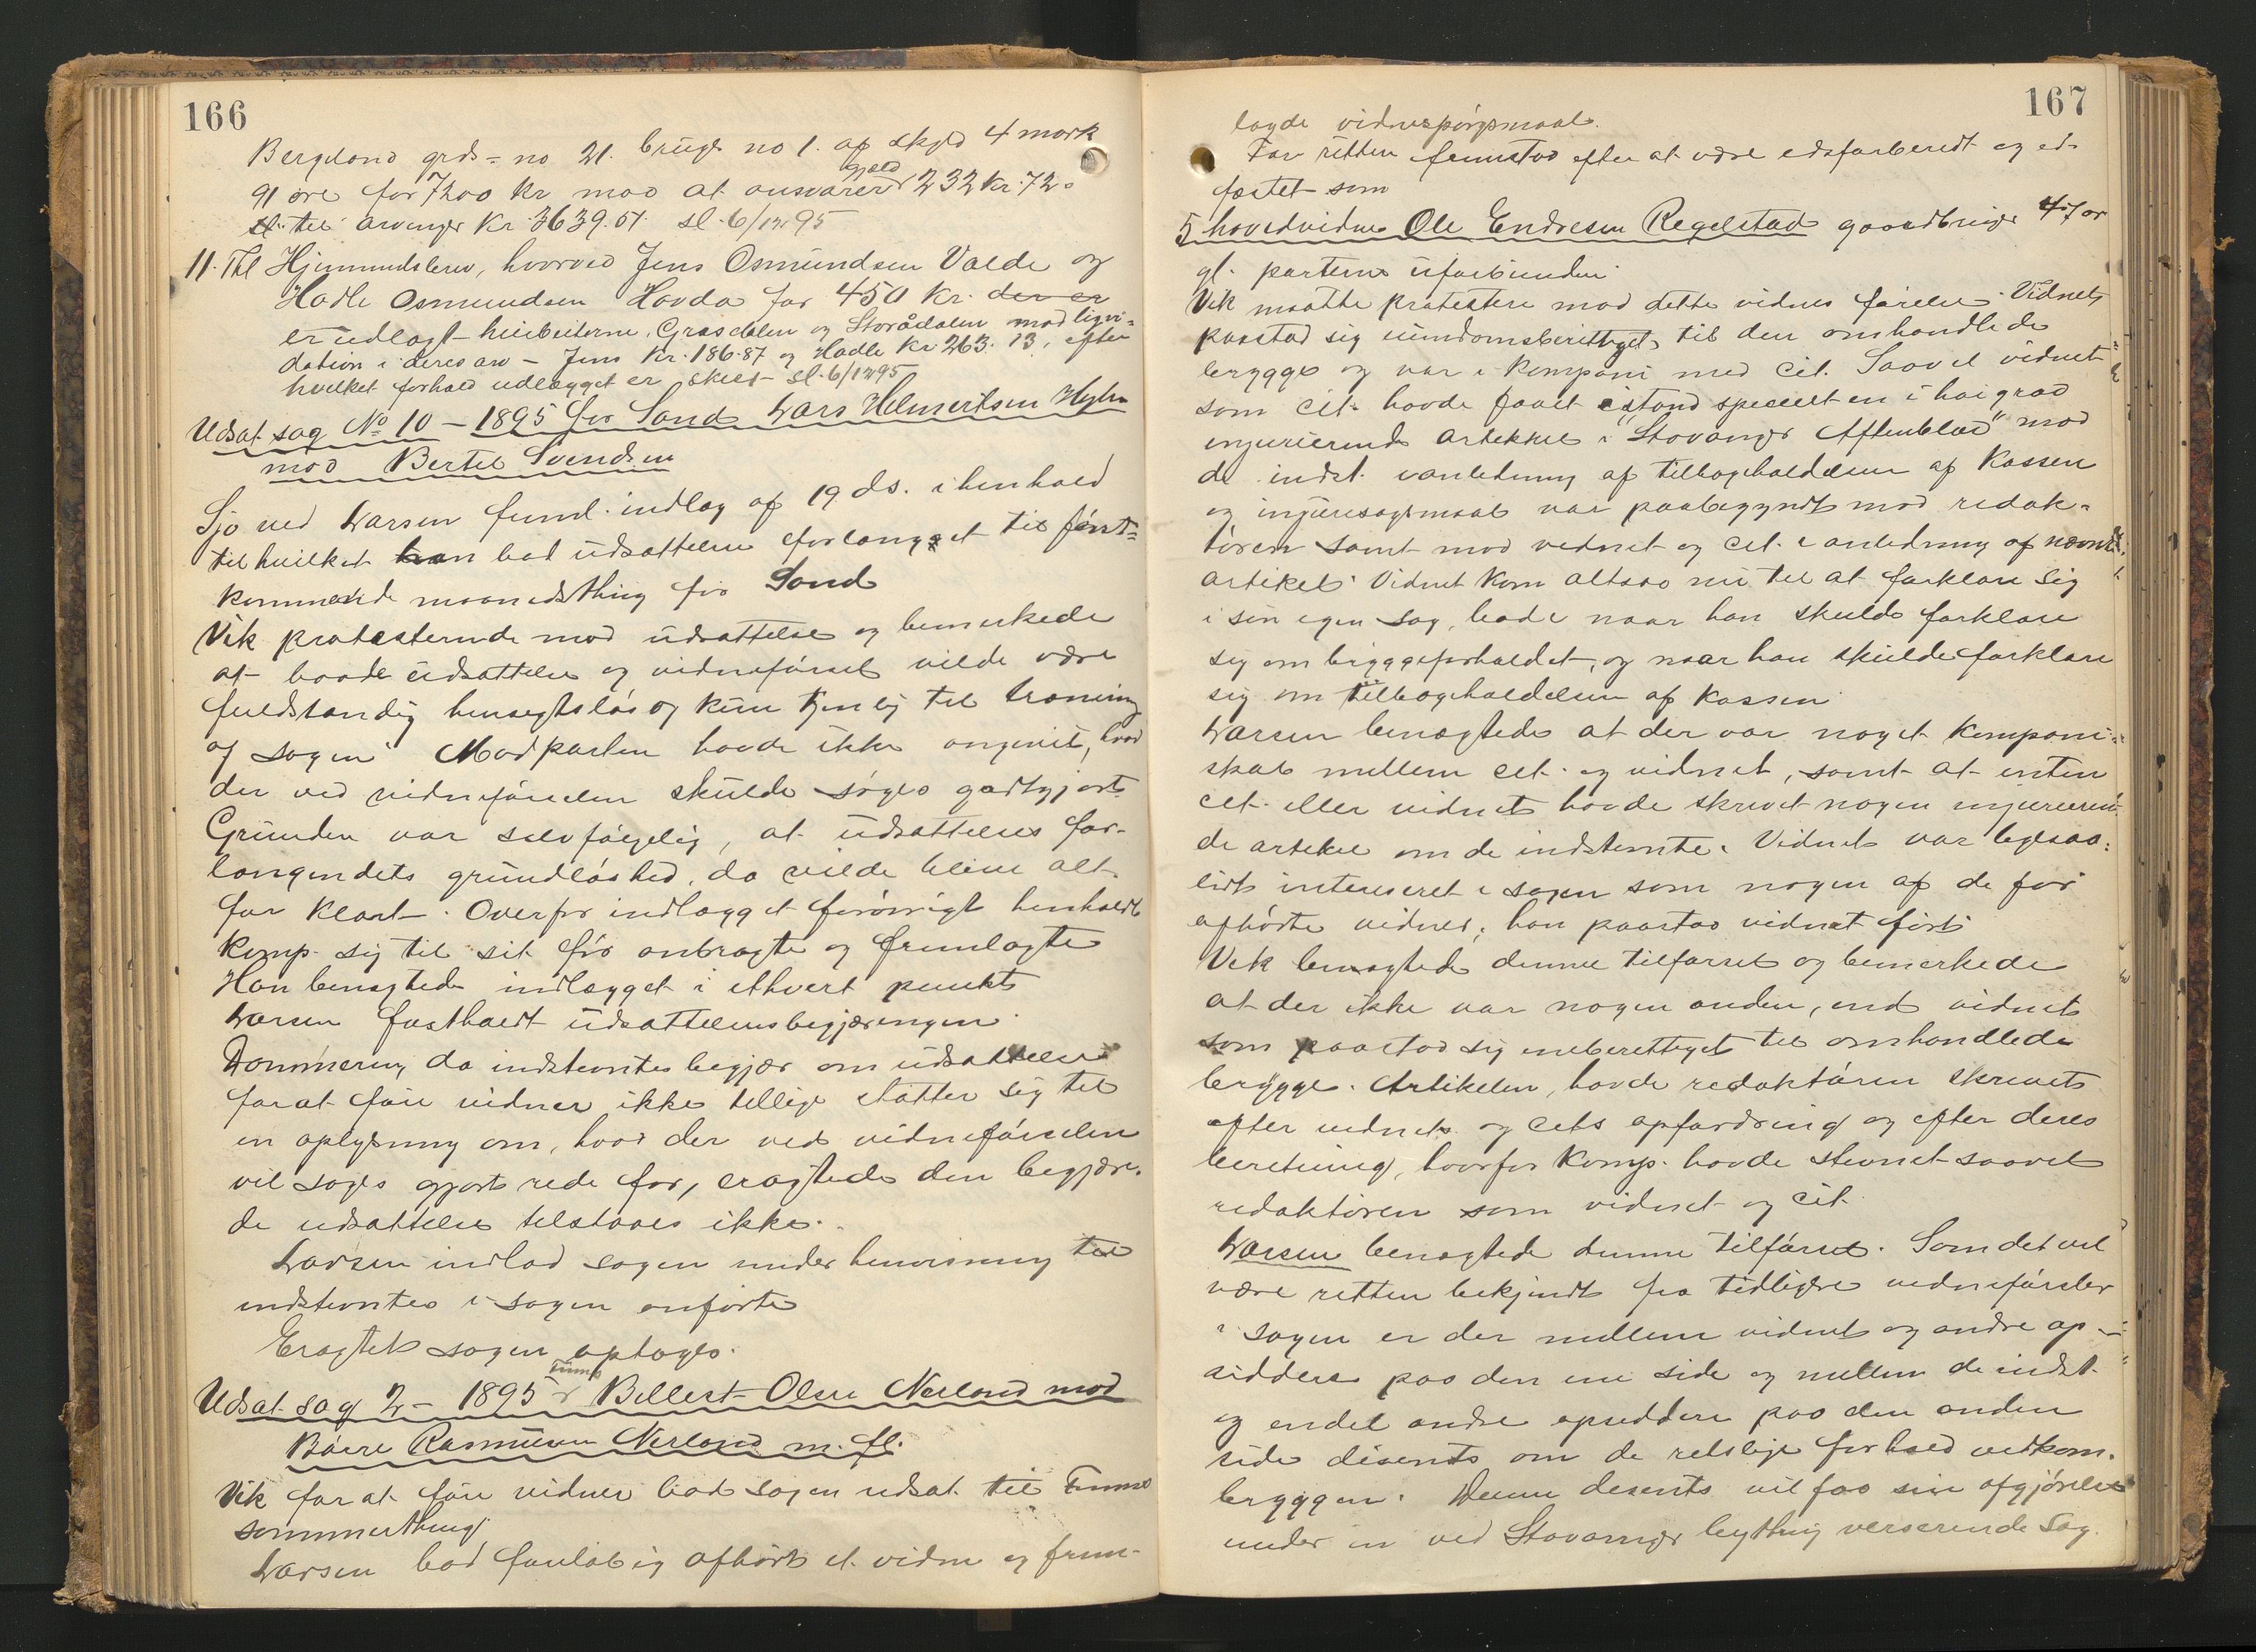 166
Bergeland grds-no 21. brugs no 1. af skyld 4 mark
91 øre for 7200 kr mod at ansvarer gjæld 232 kr. 72.
til arvinger Kr. 3639.51. sl. 6/12 95
11. Thl Hjemmelsbrev, hvorved Jens Osmundsen Valde og
Hadle Osmundsen Hovda for 450 kr. der er
er udlagt heibeiterne Græsdalen og Storådalen mod liqvi-
dation i deres arv - Jens Kr. 186.87 og Hadle Kr. 263.13, efter
hvilket forhold udlægget er skeet sl. 6/12 95
Udsat sag No 10 - 1895 for Sand Lars Helmertsen
mod Bertel Svendsen
Sjo ved Larsen freml. indlæg af 19 ds. i henhold
til hvilket han bad udsættelse forlanget til først-
kommende maanedsthing for Sand
Vik protesterende mod udsættelse og bemerkede
at baade udsættelse og vidneførsel vilde være
fuldstændig hensigtsløs og kun tjenlig til træning
af sagen. Modparten havde ikke angivet, hvad
der ved vidneførselen skulde søges godtgjort.
Grunden var selvfølgelig, at udsættelses for-
langendets grundløshed, da vilde blive alt-
for klart. Overfor indlægget forøvrigt henholdt
Komp. sig til sit før anbragte og fremlagte
Han benegtede indlægget i ethvert punkt
Larsen fastholdt udsættelsesbegjæringen.
Dommeren, da indstevntes begjær om udsættelse
forat føre vidner ikke tillige støtter sig til
en oplysning om, hvad der ved vidneførselen
vil søges gjort rede for, eragtede den begjær-
de udsættelse tilstaaes ikke.
Larsen indlod sagen under henvisning til
indstevntes i sagen anførte
Eragtet sagen optages.
Udsat sag 2 - 1895 Finnø Bellest Olsen Nerland mod
Baere Rasmusen Nerland m. fl.
Vik for at føre vidner bad sagen udsat til Finnø
sommerthing
Larsen bad foreløbig afhørt et vidne og frem-
167
lagde vidnespørgsmaal.
For retten fremstod efter at være edsforberedt og ed-
fæstet som
5 hovedvidne Ole Endresen Regelstad gaardbruger 47 aar
gl. parterne uforbunden.
Vik maatte protestere mod dette vidnes førelse. Vidnet
paastod sig eiendomsberettiget til den omhandlede
brygge og var i kompani med cit. Saavel vidnet
som cit. havde faaet istand specielt en i høi grad
injurierende artikkel i "Stavanger Aftenblad" mod
de indst. i anledning af tilbageholdelsen af kassen
og injuriesøgsmaal var paabegyndt mod redak-
tøren samt mod vidnet og cit. i anledning af nævnte
artikel. Vidnet kom altsaa nu til at forklare sig
i sin egen sag, baade naar han skulde forklare
sig om bryggeforholdet, og naar han skulde forklare
sig om tilbageholdelsen af kassen.
Larsen benegtede at der var noget kompani-
skab mellem cit. og vidnet, samt at enten
cit. eller vidnet havde skrevet nogen injurieren-
de artikel om de indstevnte. Vidnet var ligesaa-
lidt interesseret i sagen som nogen af de før
afhørte vidner; han paastod vidnet ført.
Vik benegtede denne tilførsel og bemerkede
at der ikke var nogen anden, end vidnet
som paastod sig eneberettiget til omhandlede
brygge. Artikelen, havde redaktøren skrevet
efter vidnets og cits opfordring og efter deres
beretning, hvorfor Komp. havde stevnet saavel
redaktøren som vidnet og cit.
Larsen benegtede denne tilførsel. Som det vil
være retten bekjendt fra tidligere vidneførsler
i sagen er der mellem vidnet og andre op-
siddere paa den ene side og mellem de indst.
og endel andre opsiddere paa den anden
side disents om de retslige forhold vedkom.
bryggen. Denne disents vil faa sin afgjørelse
under en ved Stavanger bything verserende sag.